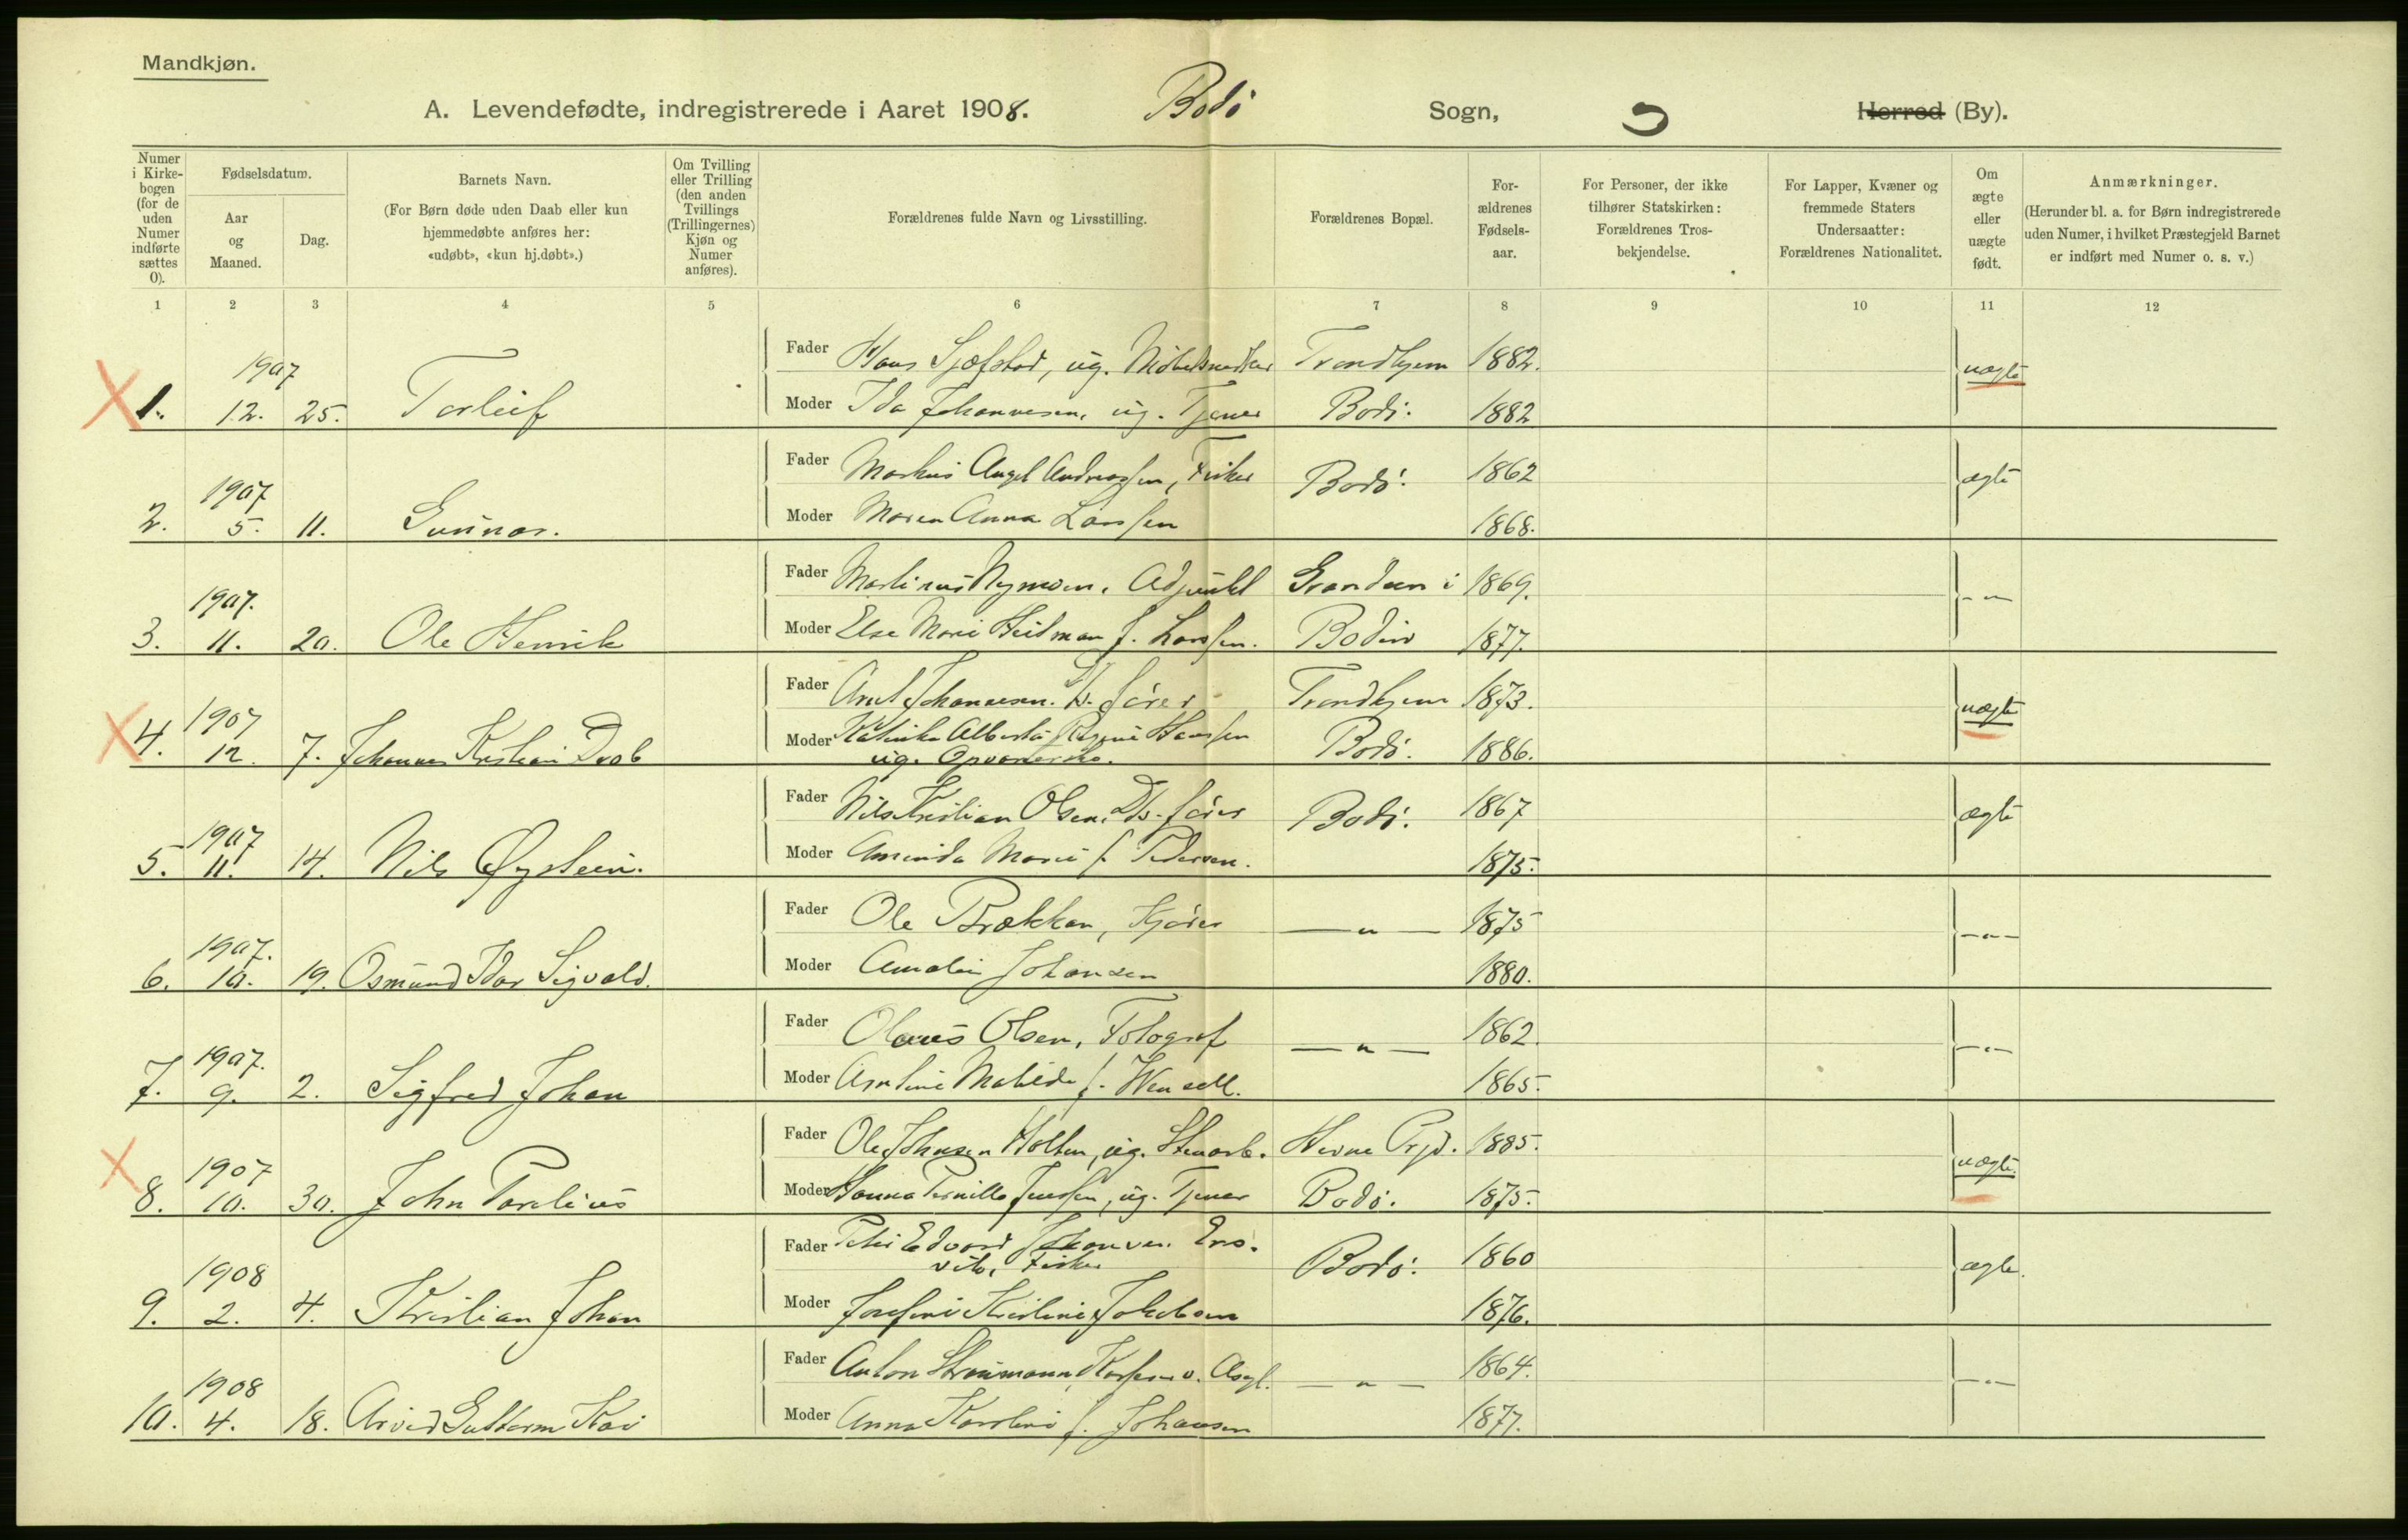 Mandkjøn.
A. Levendefødte, indregistrerede i Aaret 1908. Bodø Sogn, Herred (By).
Numer i Kirke-bogen (for de uden Numer indførte sættes 0).
Fødselsdatum.
Aar og Maaned.
Dag.
Barnets Navn.
(For Børn døde uden Daab eller kun
hjemmedøbte anføres her:
«udøbt», «kun hj.døbt».)
Om Tvilling
eller Trilling
(den anden
Tvillings
(Trillingernes)
Kjøn og
Numer
anføres).
Forældrenes fulde Navn og Livsstilling.
Forældrenes Bopæl.
For-
ældrenes
Fødsels-
aar.
For Personer, der ikke
tilhører Statskirken:
Forældrenes Tros-
bekjendelse.
For Lapper, Kvæner og
fremmede Staters
Undersaatter:
Forældrenes Nationalitet.
Om
ægte
eller
uægte
født.
Anmærkninger.
(Herunder bl. a. for Børn indregistrerede
uden Numer, i hvilket Præstegjeld Barnet
er indført med Numer o. s. v.)
1 2 3 4 5 6 7 8 9 10 11 12
Fader Hans ug. Trondhjem 1882. uægte
1907
1. 12. 25. Torleif Moder Ida Johannesen, ug. Tjener Bodø. 1882
Fader Markus Angel Andreassen, Fisker Bodø. 1862 ægte
1907
2. 5. 11. Gunnar. Moder Maren Anna Larssen 1868.
Fader Martinus Nymoen, Adjunkt i 1869. - " -
1907.
3. 11. 20. Ole Henrik Moder Else Marie Heitman f. Larssen. Bodin 1877.
Fader Johannesen. Trondhjem 1873. uægte
1907
4. 12. 7. Johannes Kristian Moder Albertha Hanssen Bodø. 1886.
ug. Opvarterske.
Fader Nils Kristian Olsen, Ds. fører Bodø. 1867 ægte
1907
5. 11. 14. Nils Øystein. Moder Aminda Marie f. Pedersen. 1875.
Fader Ole Brækkan, Kjører — " — 1875 - " -
1907.
6. 10. 19. Osmund Idar Sigvald. Moder Amalie Johansen 1880.
Fader Olaus Olsen, Fotograf — " — 1862. - " -
1907.
7. 9. 2. Sigfred Johan Moder Matilde f. Wensell. 1865.
Fader Ole Johnsen Holten, ug. Stenarb. Hevne Prgd. 1885. uægte.
1907
8. 10. 30. John Parelius Moder Hanna Pernille Jenssen, ug. Tjener Bodø. 1875.
Fader Peter Edvard
Fisker Bodø. 1860 ægte.
1908
9. 2. 4. Kristian Johan Moder Josefine Kristine Jakobsen 1876.
Fader Anton Straumann — " — 1864. - " -
1908
10. 4. 18. Arvid Guttorm Kai Moder Anna Karoline f. Johansen 1877.